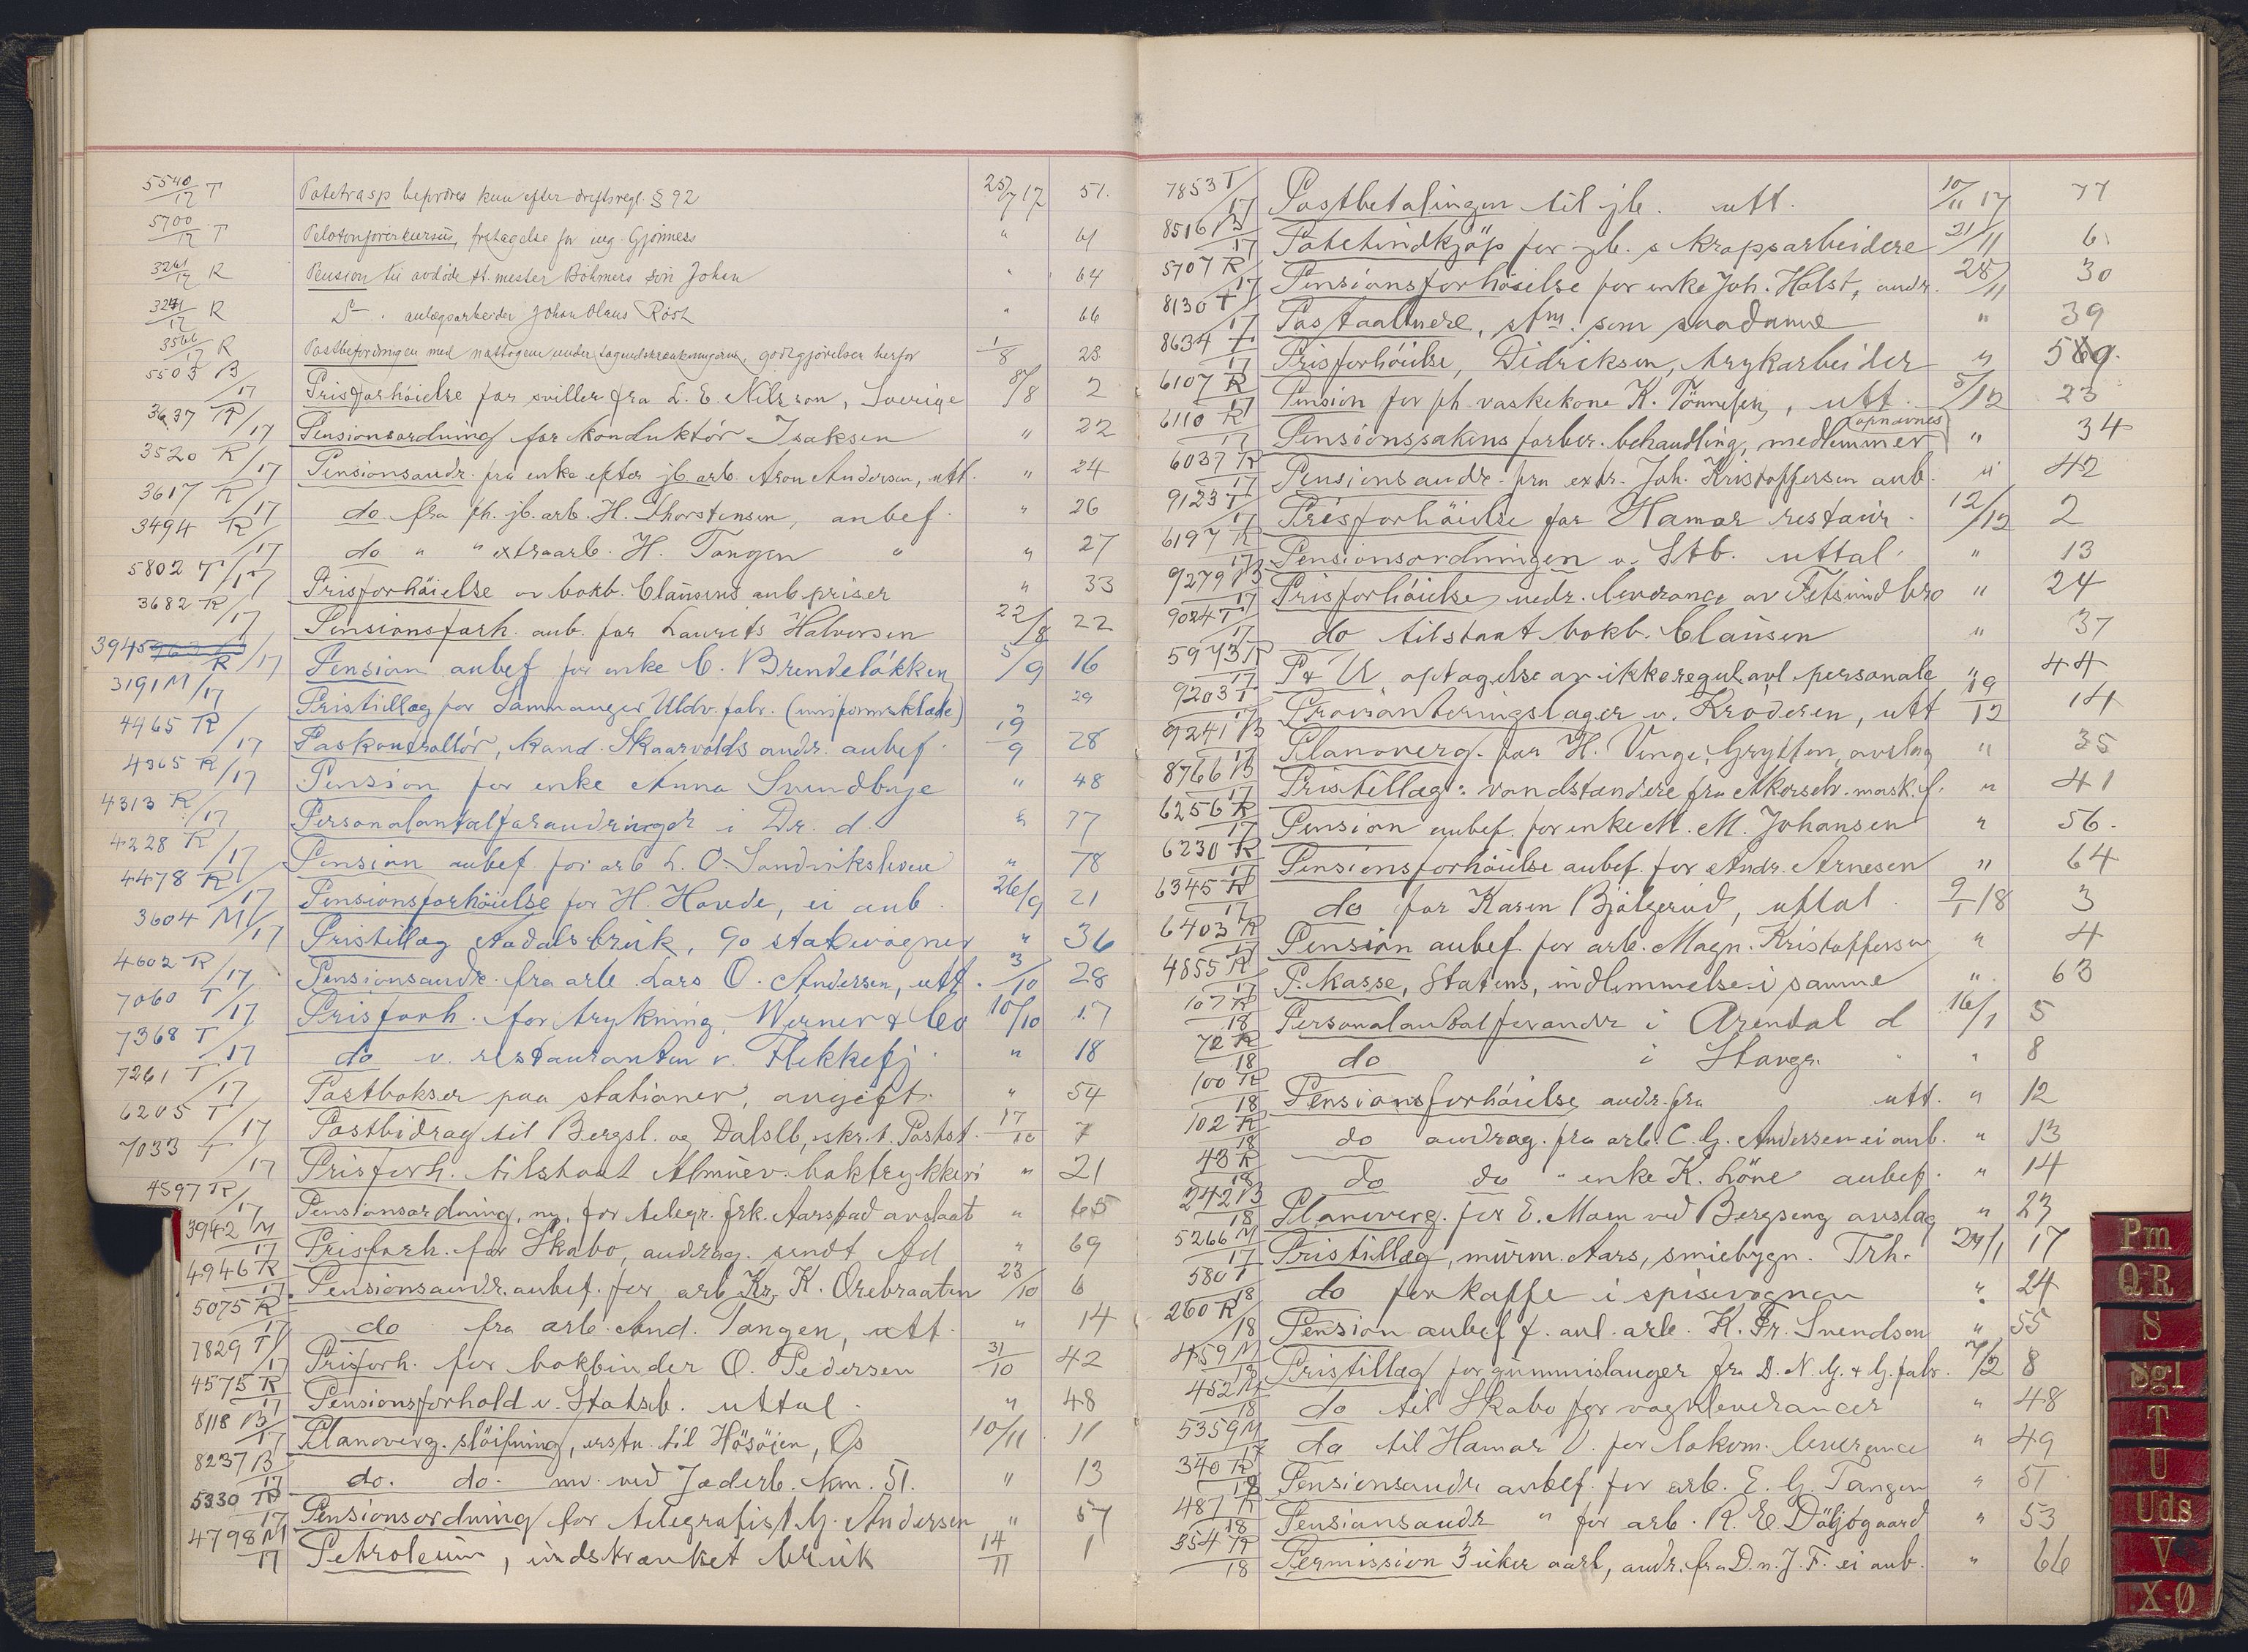 5540/17 T Potetrasp beprøves kun efter driftsregl. § 92 25/7 17 51.
5700/17 T Pelotonførerkursus, fritagelse for ing. Gjønness " 61
3261/17 R Pension til avdøde st.mester Böhmers søn Johan " 64
3271/17 R D- " anlægsarbeider Johan Olaus " 66
3561/17 R Postbefordringen med nattogene under togindskrænkningerne, godtgjørelser herfor 1/8 23
5503 B/17 Prisforhöielse for sviller fra L. E. Nilsson, Sverige 8/8 2
3637 R/17 Pensionsordning for konduktör Isaksen " 22
3520 R/17 Pensionsandr. fra enke efter jb.arb. Aron Andersen, utt. " 24
3617 R/17 do fra fh. jb.arb. H. Thorstensen, anbef. " 26
3494 R/17 do " " extraarb. H. Tangen " " 27
5802 T/17 Prisforhöielse av bokb. Clausens anb.priser " 33
3682 R/17 Pensionsforh. anb. for Laurits Halvorsen 22/8 22
3945 R/17 Pension anbef for enke C. Brendelökken 5/9 16
3191 M/17 Pristillæg for Samnanger Uldv.fabr. (uniformsklæde) " 29
4465 R/17 Paskontrollör, kand. Skaarvolds andr. anbef. 19/9 28
4365 R/17 Pension for enke Anna Svendbye " 48
4313 R/17 Personalantalforandringer i Dr. d. " 77
4228 R/17 Pension anbef for arb L. O. Sandvikshven " 78
4478 R/17 Pensionsforhöielse for H. Hovde, ei anb. 26/9 21
3604 M/17 Pristillæg Aadals bruk, 90 stakevogner " 36
4602 R/17 Pensionsandr. fra arb Lars O. Andersen, utt. 3/10 28
7060 T/17 Prisforh. for trykning, Werner & Co 10/10 17
7368 T/17 do v. restauranten v. Flekkefj. " 18
7261 T/17 Postbokser paa stationer, avgift. " 54
6205 T/17 Postbidrag til Bergsl. og Dalslb, skr. t. Postst. 17/10 7
7033 T/17 Prisforh. tilstaat Almuev. boktrykkeri " 21
4597 R/17 Pensionsordning, ny, for telegr. frk. Aarstad avslaat " 65
3942 M/17 Prisforh. for Skabo, andrag. sendt Ad " 69
4946 R/17 Pensionsandr. anbef. for arb Kr. K. Orebraaten 23/10 6
5075 R/17 do fra arb. And. Tangen, utt. " 14
7829 T/17 Prisforh. for bokbinder O. Pedersen 31/10 42
4575 R/17 Pensionsforhold v. Statsb. uttal. " 48
8118 B/17 Planoverg. slöifning, erstn. til Hösöien, Os 10/11 11
8237 B/17 do. do. mv. ved Jæderb. km. 51. " 13
5330 R/17 Pensionsordning for telegrafist G. Andersen " 57
4798 M/17 Petroleum, indskrænket bruk 14/11 1
7853 T/17 Postbetalingen til jb. utt. 10/11 17 77
8516 B/17 Potetindkjöp for jb. s kropsarbeidere 21/11 6
5707 R/17 Pensionsforhöielse for enke Joh. Holst, andr. 28/11 30
8130 T/17 Postaabnere, stm. som saadanne " 39
8634 T/17 Prisforhöielse, Didriksen, trykarbeider " 59.
6107 R/17 Pension for fh. vaskekone K. Tönnesen, utt. 5/12 23
6110 R/17 Pensionssakens forber. behandling, medlemmer opnævnes " 34
6037 R/17 Pensionsandr. fra extr. Joh. Kristoffersen anb. " 42
9123 T/17 Prisforhöielse for Hamar restaur. 12/12 2
6197 R/17 Pensionsordningen v. Stb. uttal. " 13
9279 B/17 Prisforhöielse vedr. leverance av Fetsund bro " 24
9024 T/17 do tilstaat bokb. Clausen " 37
5973 R/17 P & U optagelse av ikkeregul. avl personale " 44
9203 T/17 Provianteringslager v. Kröderen, utt 19/12 14
9241 B/17 Planoverg. for H. Vinge, Grytten, avslag " 35
8766 B/17 Pristillæg: vandstandere fra Akerselv. mask.f. " 41
6256 R/17 Pension anbef. for enke M. M. Johansen " 56.
6230 R/17 Pensionsforhöielse anbef. for Andr. Arnesen " 64
6345 R/17 do for Karen Bjölgerud, uttal. 9/1 18 3
6403 R/17 Pension anbef. for arb. Magn. Kristoffersen " 4
4855 R/17 P. kasse, Statens, indlemmelse i samme " 63
107 R/18 Personalantalforandr i Arendal d 16/1 5
72 R/18 do i Stavgr. " " 8
100 R/18 Pensionsforhöielse, andr. fra utt. " 12
102 R/18 do andrag. fra arb. C. G. Andersen ei anb. " 13
43 R/18 do do " enke K. Löne anbef. " 14
242 B/18 Planoverg. for E. Moen ved Bergseng avslag " 23
5266 M/17 Pristillæg, murm. Aars, smiebygn. Trh. 24/1 17
580 T/18 do for kaffe i spisevognen " 24
260 R/18 Pension anbef f. anl. arb. K. Fr. Svendsen " 55
459 M/18 Pristillæg for gummislanger fra D. N. G. & G. fabr. 7/2 8
452 M/18 do til Skabo for vognleverancer " 48
5359 M/17 do til Hamar J. for lokom. leverance " 49
340 R/18 Pensionsandr. anbef. for arb. E. G. Tangen " 51
487 R/18 Pensionsandr " for arb. R. E. Döljögaard " 53
354 R/18 Permission 3 uker aarl, andr. fra D. n. J. F. ei anb. " 66
Pm
Q-R
S
Sgl
T
U
Uds
V
X-Ø